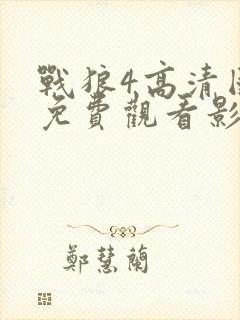 戰狼4高清
免費觀看影
鄭慧蘭